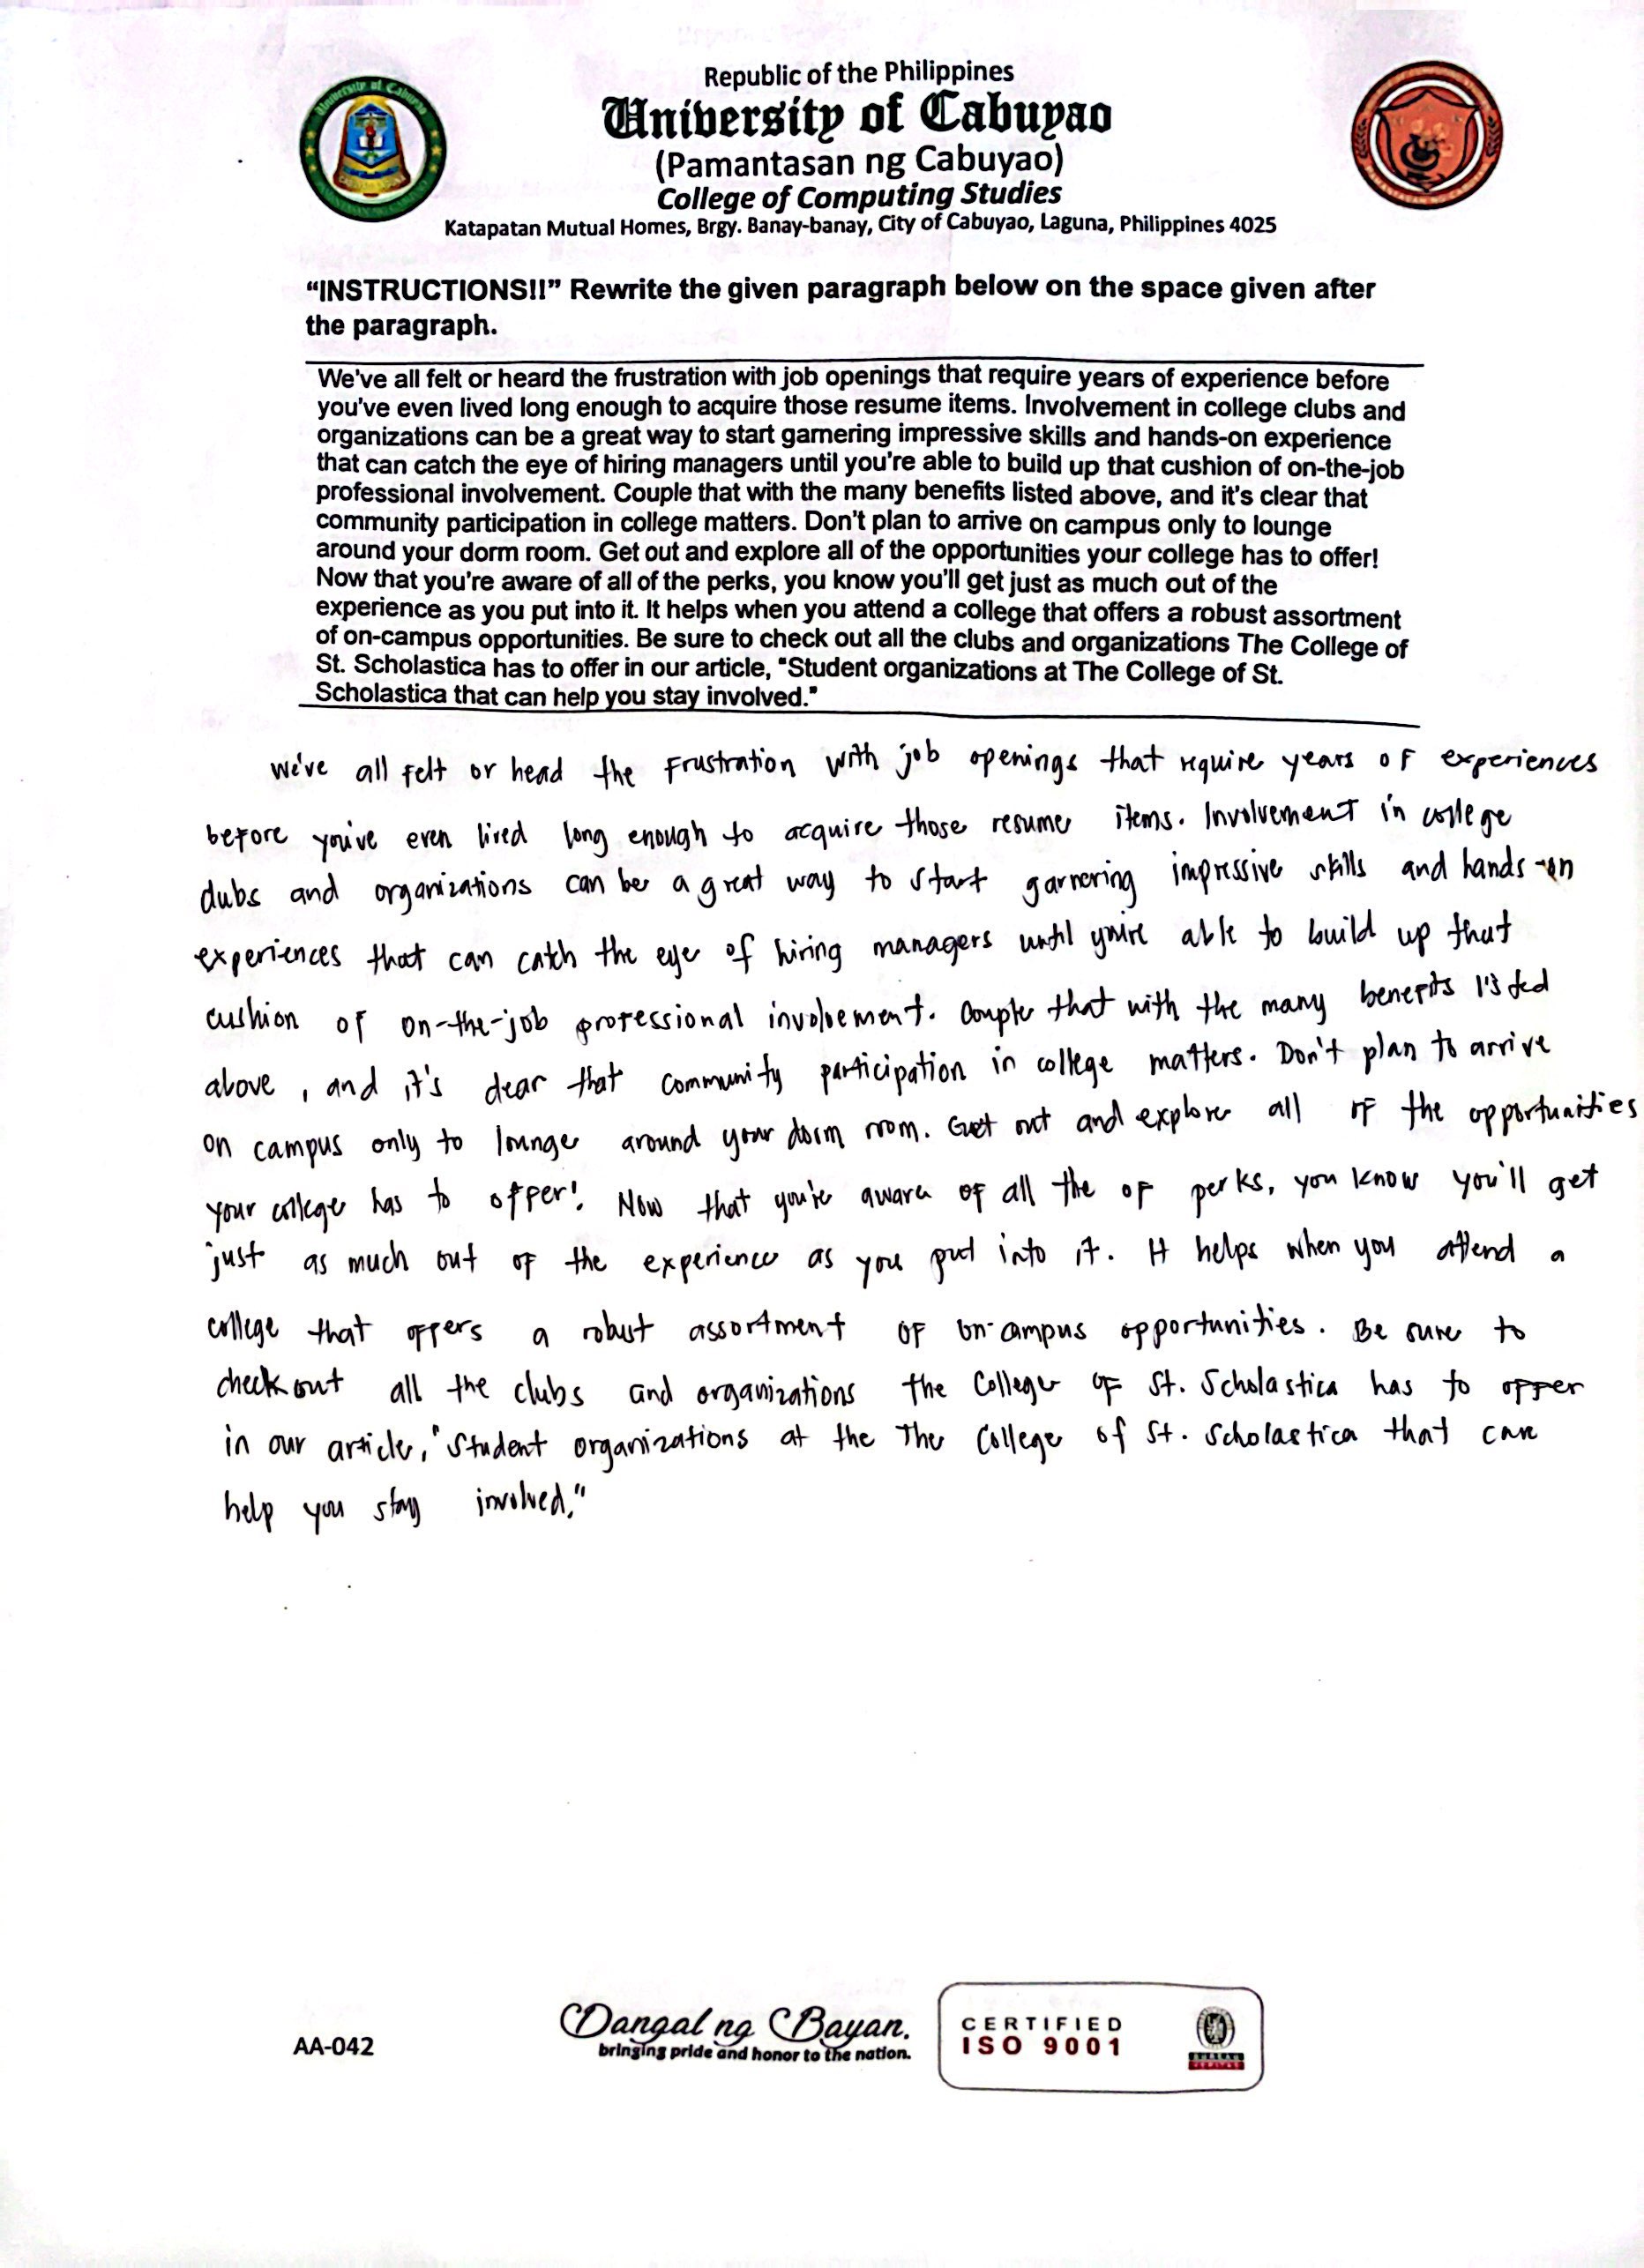 Republic of the Philippines
University of Cabuyao
(Pamantasan ng Cabuyao)
College of Computing Studies
Katapatan Mutual Homes, Brgy. Banay-banay, City of Cabuyao, Laguna, Philippines 4025
University of Cabuyao
“INSTRUCTIONS!!” Rewrite the given paragraph below on the space given after
the paragraph.
We've all felt or heard the frustration with job openings that require years of experience before
you've even lived long enough to acquire those resume items. Involvement in college clubs and
organizations can be a great way to start garnering impressive skills and hands-on experience
that can catch the eye of hiring managers until you're able to build up that cushion of on-the-job
professional involvement. Couple that with the many benefits listed above, and it's clear that
community participation in college matters. Don't plan to arrive on campus only to lounge
around your dorm room. Get out and explore all of the opportunities your college has to offer!
Now that you're aware of all of the perks, you know you'll get just as much out of the
experience as you put into it. It helps when you attend a college that offers a robust assortment
of on-campus opportunities. Be sure to check out all the clubs and organizations The College of
St. Scholastica has to offer in our article, "Student organizations at The College of St.
Scholastica that can help you stay involved."
We've all felt or head the frustration with job openings that require years of experiences
before you've even lived long enough to acquire those resume items. Involvement in college
clubs and organizations can be a great way to start garnering impressive skills and hands-on
experiences that can catch the eye of hiring managers until you're able to build up that
cushion of on-the-job professional involvement. Couple that with the many benefits listed
above, and it's clear that community participation in college matters. Don't plan to arrive
on campus only to lounge around your dorm room. Get out and explore all of the opportunities
your college has to offer! Now that you're aware of all the of perks, you know you'll get
just as much out of the experience as you put into it. It helps when you attend a
college that offers a robust assortment of on-campus opportunities. Be sure to
check out all the clubs and organizations the College of St. Scholastica has to offer
in our article, "Student organizations at the The College of St. Scholastica that can
help you stay involved."
AA-042
Dangal ng Bayan.
bringing pride and honor to the nation.
CERTIFIED
ISO 9001
BUREAU
VERITAS